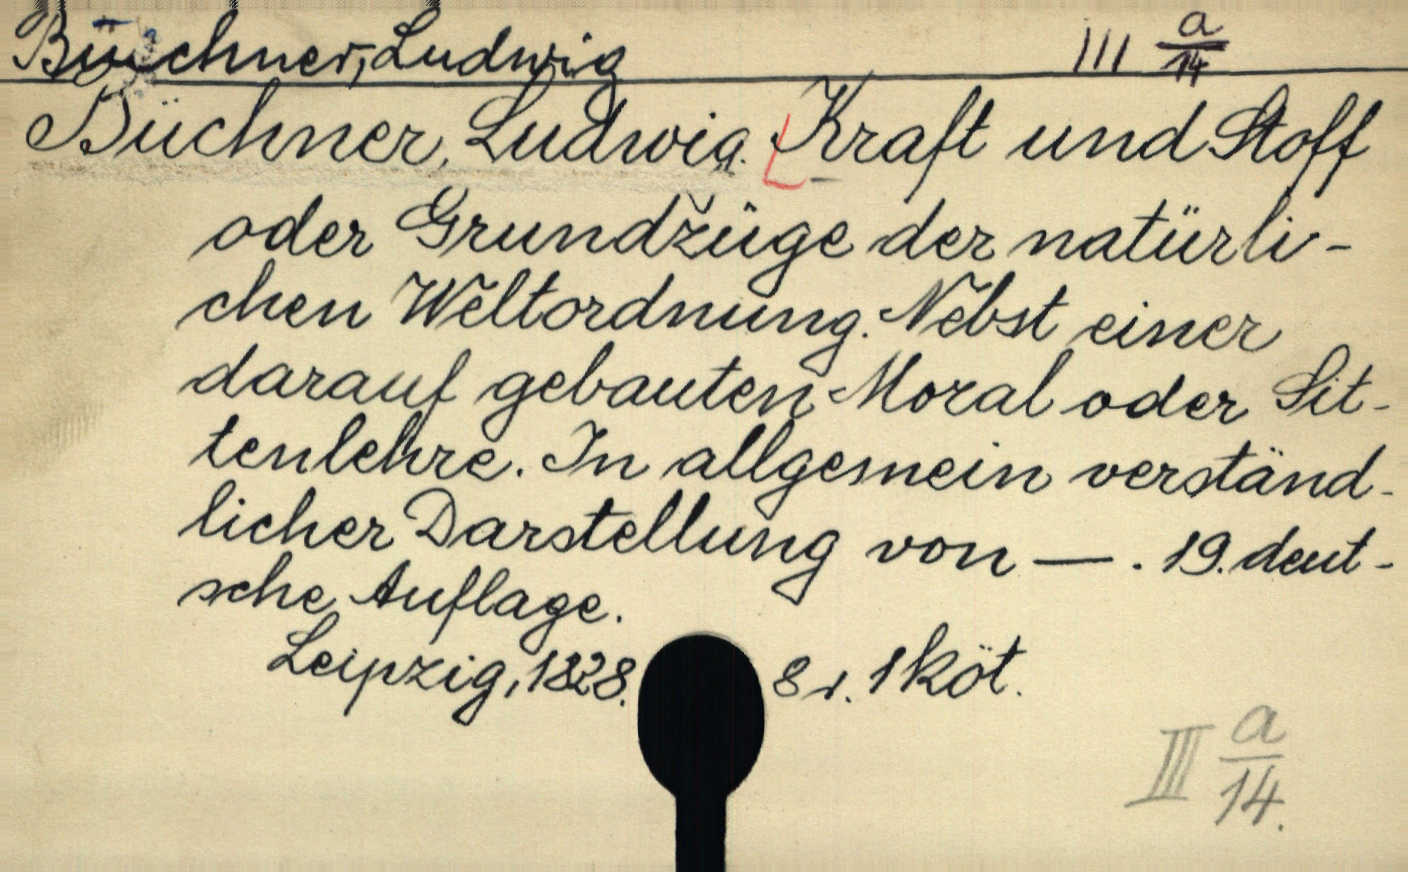 Büchner, Ludwig III a/14
Büchner, Ludwig. Kraft und Stoff
oder Grundzüge der natürli-
chen Weltordnung. Nebst einer
darauf gebauten Moral oder Sit-
tenlehre. In allgemein verständ-
licher Darstellung von —. 19. deut-
sche Auflage.
Leipzig, 1828. 8 r. 1 köt.
III a/14.